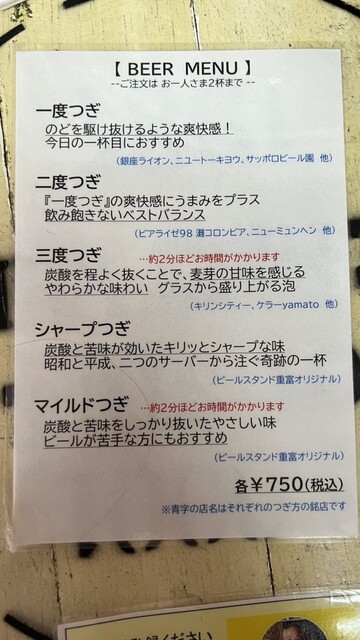 【 BEER MENU 】
--ご注文は お一人さま2杯まで --
一度つぎ
のどを駆け抜けるような爽快感！
今日の一杯目におすすめ
(銀座ライオン、ニュートーキヨウ、サッポロビール園 他)
二度つぎ
『一度つぎ』の爽快感にうまみをプラス
飲み飽きないベストバランス
(ビアライゼ98 灘コロンビア、ニューミュンヘン 他)
三度つぎ …約2分ほどお時間がかかります
炭酸を程よく抜くことで、麦芽の甘味を感じる
やわらかな味わい グラスから盛り上がる泡
(キリンシティー、ケラーyamato 他)
シャープつぎ
炭酸と苦味が効いたキリッとシャープな味
昭和と平成、二つのサーバーから注ぐ奇跡の一杯
(ビールスタンド重富オリジナル)
マイルドつぎ …約2分ほどお時間がかかります
炭酸と苦味をしっかり抜いたやさしい味
ビールが苦手な方にもおすすめ
(ビールスタンド重富オリジナル)
各￥750(税込)
※青字の店名はそれぞれのつぎ方の銘店です
ください